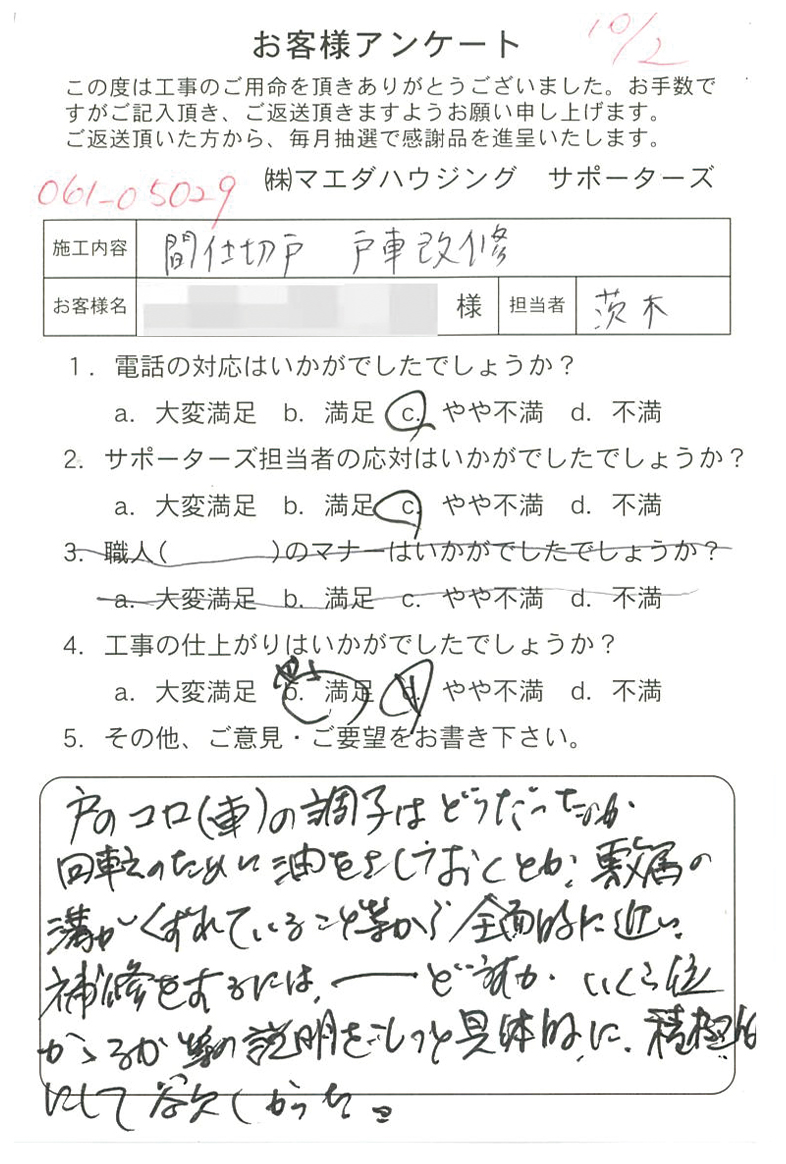 10/2
お客様アンケート
この度は工事のご用命を頂きありがとうございました。お手数で
すがご記入頂き、ご返送頂きますようお願い申し上げます。
ご返送頂いた方から、毎月抽選で感謝品を進呈いたします。
061-05029
㈱マエダハウジング サポーターズ
施工内容 間仕切戸 戸車改修
お客様名 様 担当者 茨木
1. 電話の対応はいかがでしたでしょうか？
a. 大変満足 b. 満足 c. やや不満 d. 不満
2. サポーターズ担当者の応対はいかがでしたでしょうか？
a. 大変満足 b. 満足 c. やや不満 d. 不満
3. 職人( )のマナーはいかがでしたでしょうか？
a. 大変満足 b. 満足 c. やや不満 d. 不満
4. 工事の仕上がりはいかがでしたでしょうか？
a. 大変満足 b. 満足 c. やや不満 d. 不満
5. その他、ご意見・ご要望をお書き下さい。
戸のコロ(車)の調子はどうだったのか
回転のために油をさしておくとか、敷居の
溝がくずれていること等から全面的に近い
補修をするには、どうするか. いくら位
かゝるか等の説明をもっと具体的に、積極的
にして欲しかった